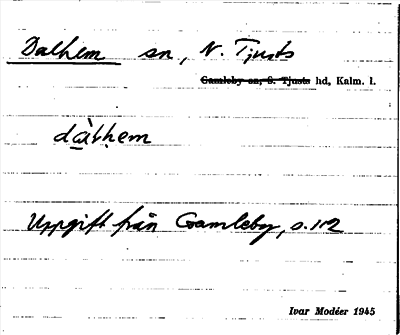 Dalhem sn, N. Tjusts
Gamleby sn, S. Tjusts hd, Kalm. l.
dàlhem
Uppgift från Gamleby, s. 112
Ivar Modéer 1945